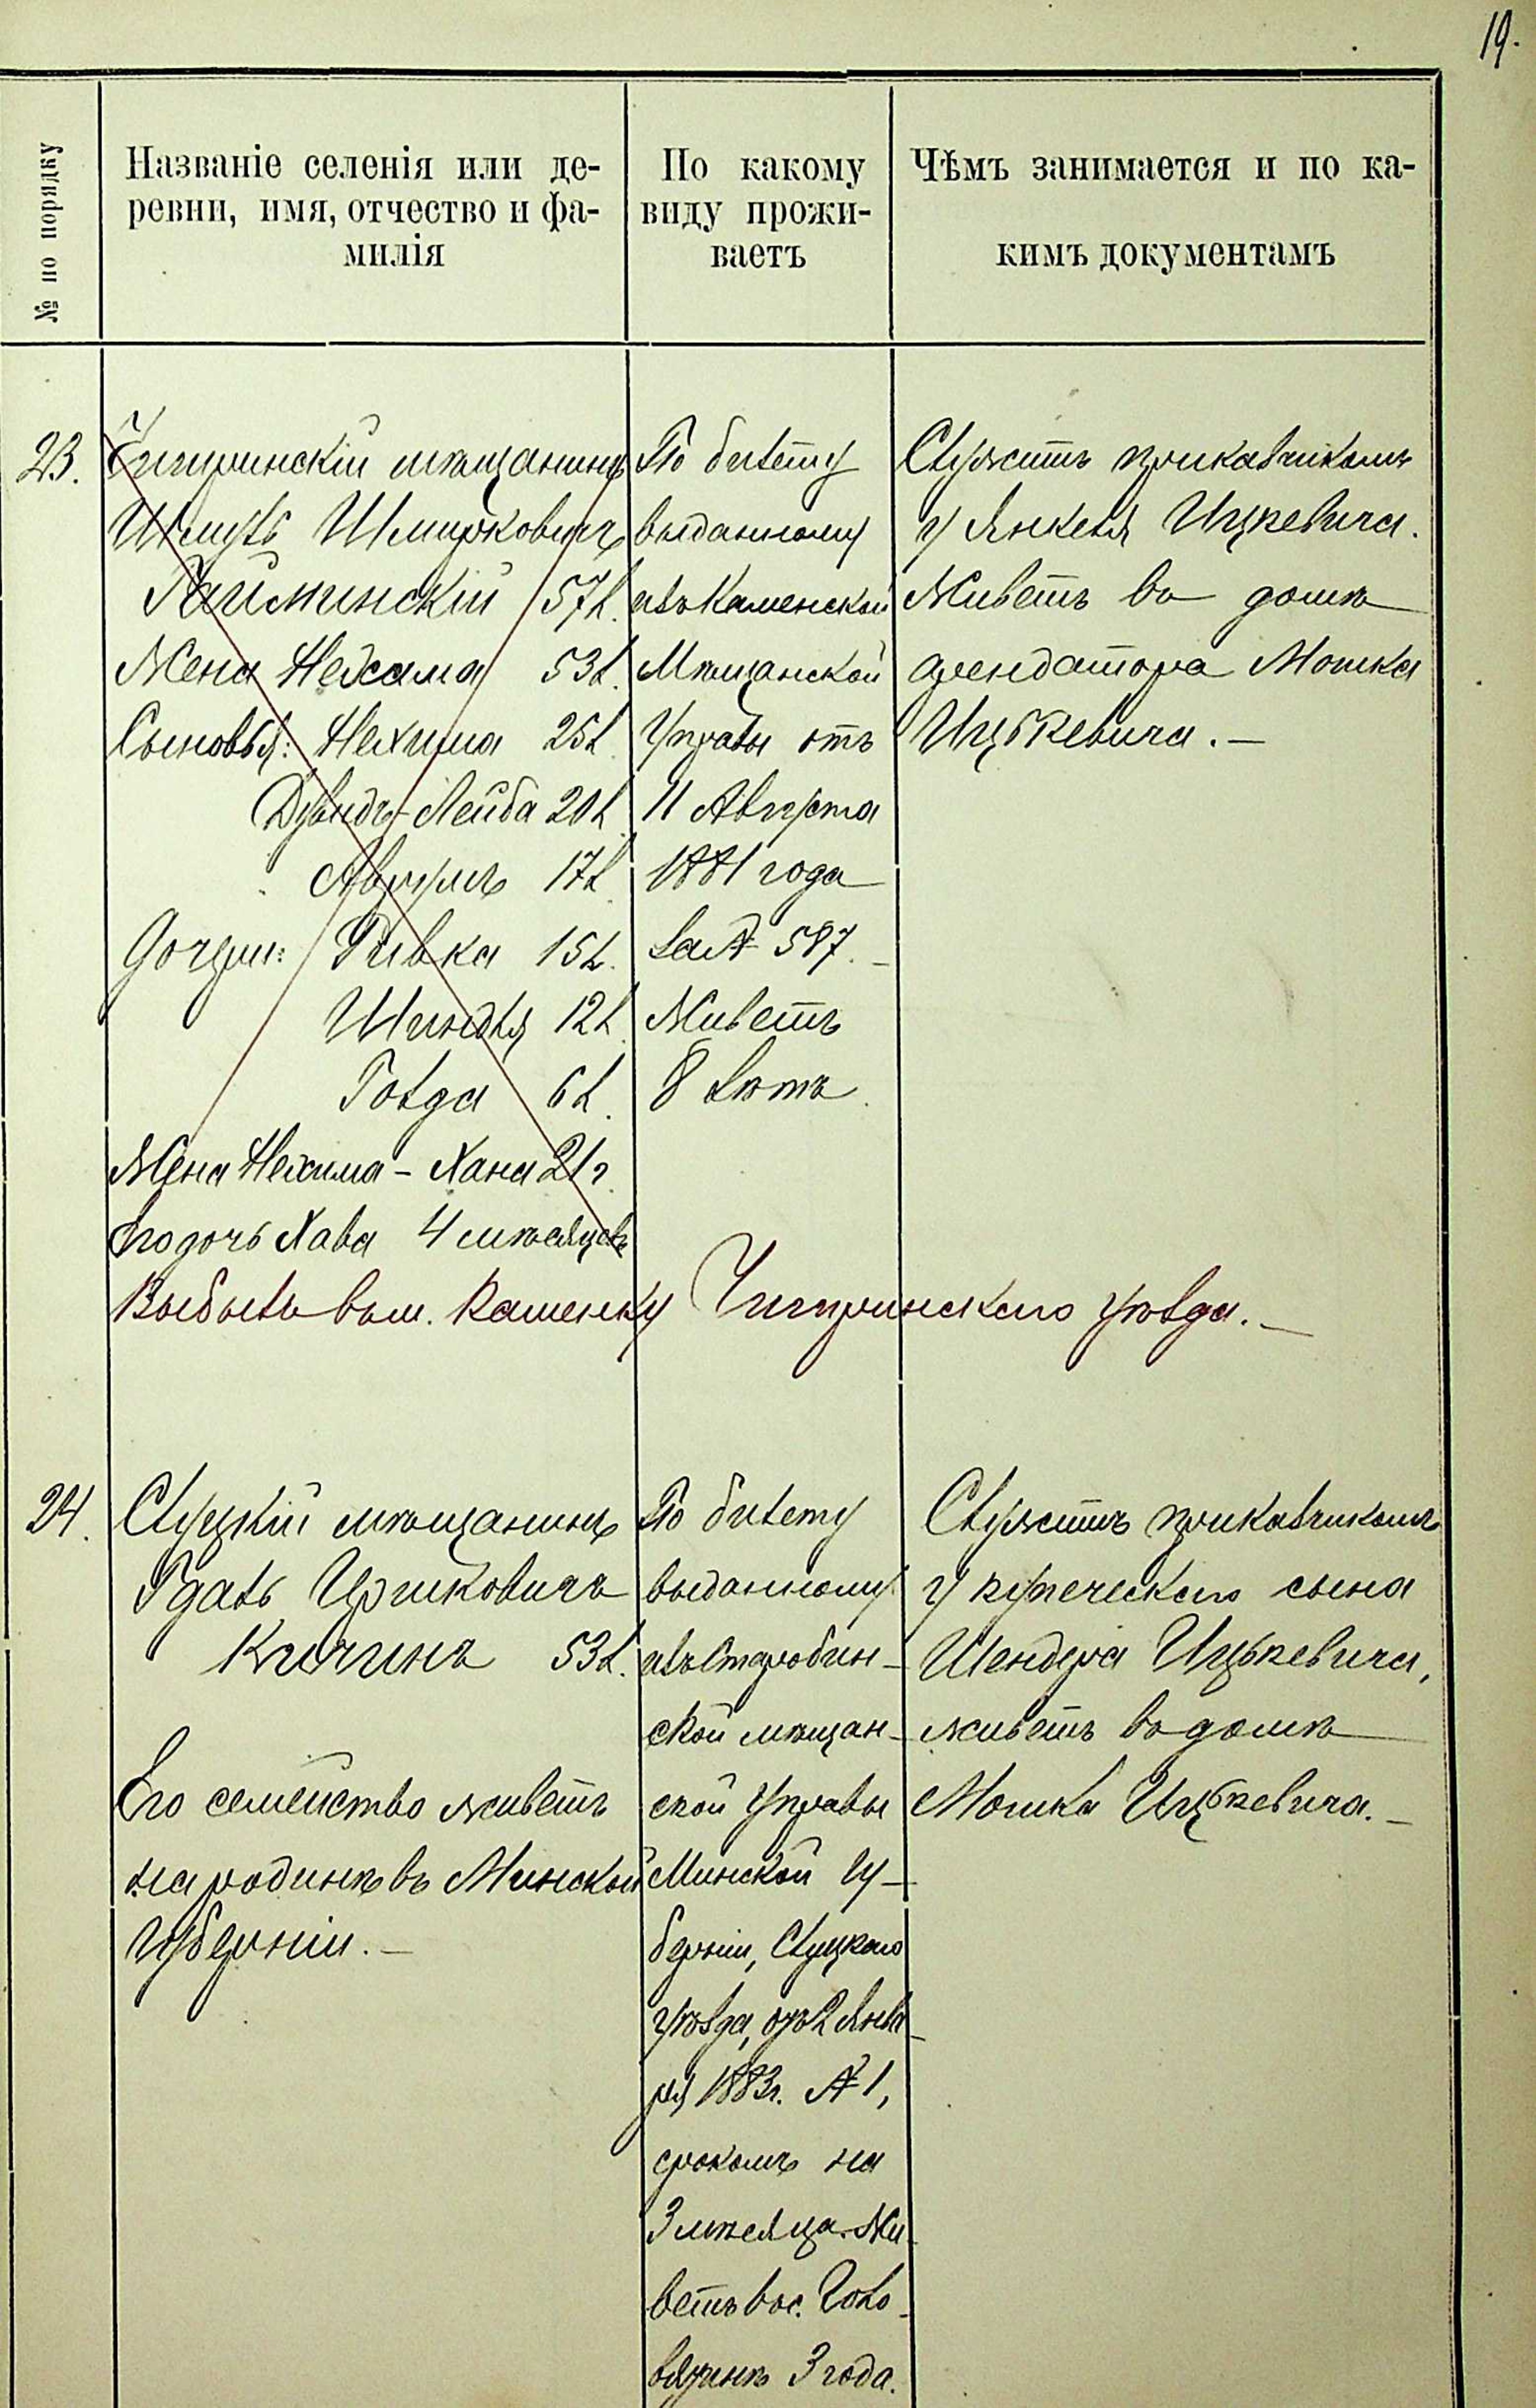 19.
№ по порядку
Названіе селенія или де-
ревни, имя, отчество и фа-
милія
По какому
виду прожи-
ваетъ
Чѣмъ занимается и по ка-
кимъ документамъ
23.
Чигиринскій мѣщанинъ
Шмуль Шмирковичъ
57 л.
Жена Нехама 53 л.
Сыновья: Нехима 25 л.
Дувидъ-Лейба 20 л.
Аврумъ 17 л.
Дочери: Ривка 15 л.
Шиндля 12 л.
Голда 6 л.
Жена Нехима - Хана 21 г.
Его дочь Хава 4 мѣсяцевъ
По билету
выданному
изъ Каменской
Мѣщанской
Управы отъ
11 Августа
1881 года
за № 587. -
Живетъ
8 лѣтъ.
Служитъ приказчикомъ
у Янкеля Ицкевича.
Живетъ въ домѣ
арендатора Мошка
Ицькевича. -
Выбылъ въ м. Каменку Чигиринскаго уѣзда. -
24.
Слуцкій мѣщанинъ
Гдаль Ициковичъ
53 л.
Его семейство живетъ
на родинѣ въ Минской
Губерніи. -
По билету
выданному
изъ Старобин-
ской мѣщан-
ской Управы
Минской гу-
берніи, Слуцкаго
уѣзда, отъ 2 Янва-
ря 1883 г. № 1,
срокомъ на
3 мѣсяца. Жи-
ветъ въ с. Голо-
вятинѣ 3 года.
Служитъ приказчикомъ
у купеческаго сына
Шендера Ицькевича,
живетъ въ домѣ
Мошка Ицькевича. -